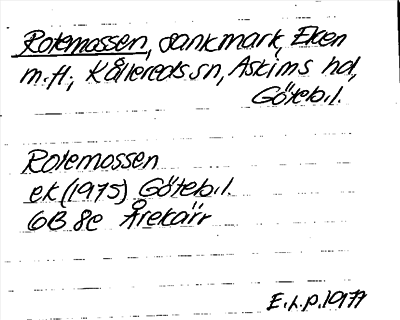 Rotemossen, sankmark, Eken
m.fl., Kållereds sn, Askims hd,
Göteb.l.
Rotemossen
ek (1975) Göteb.l.
6B 8e Årekärr
E.L.P. 1977